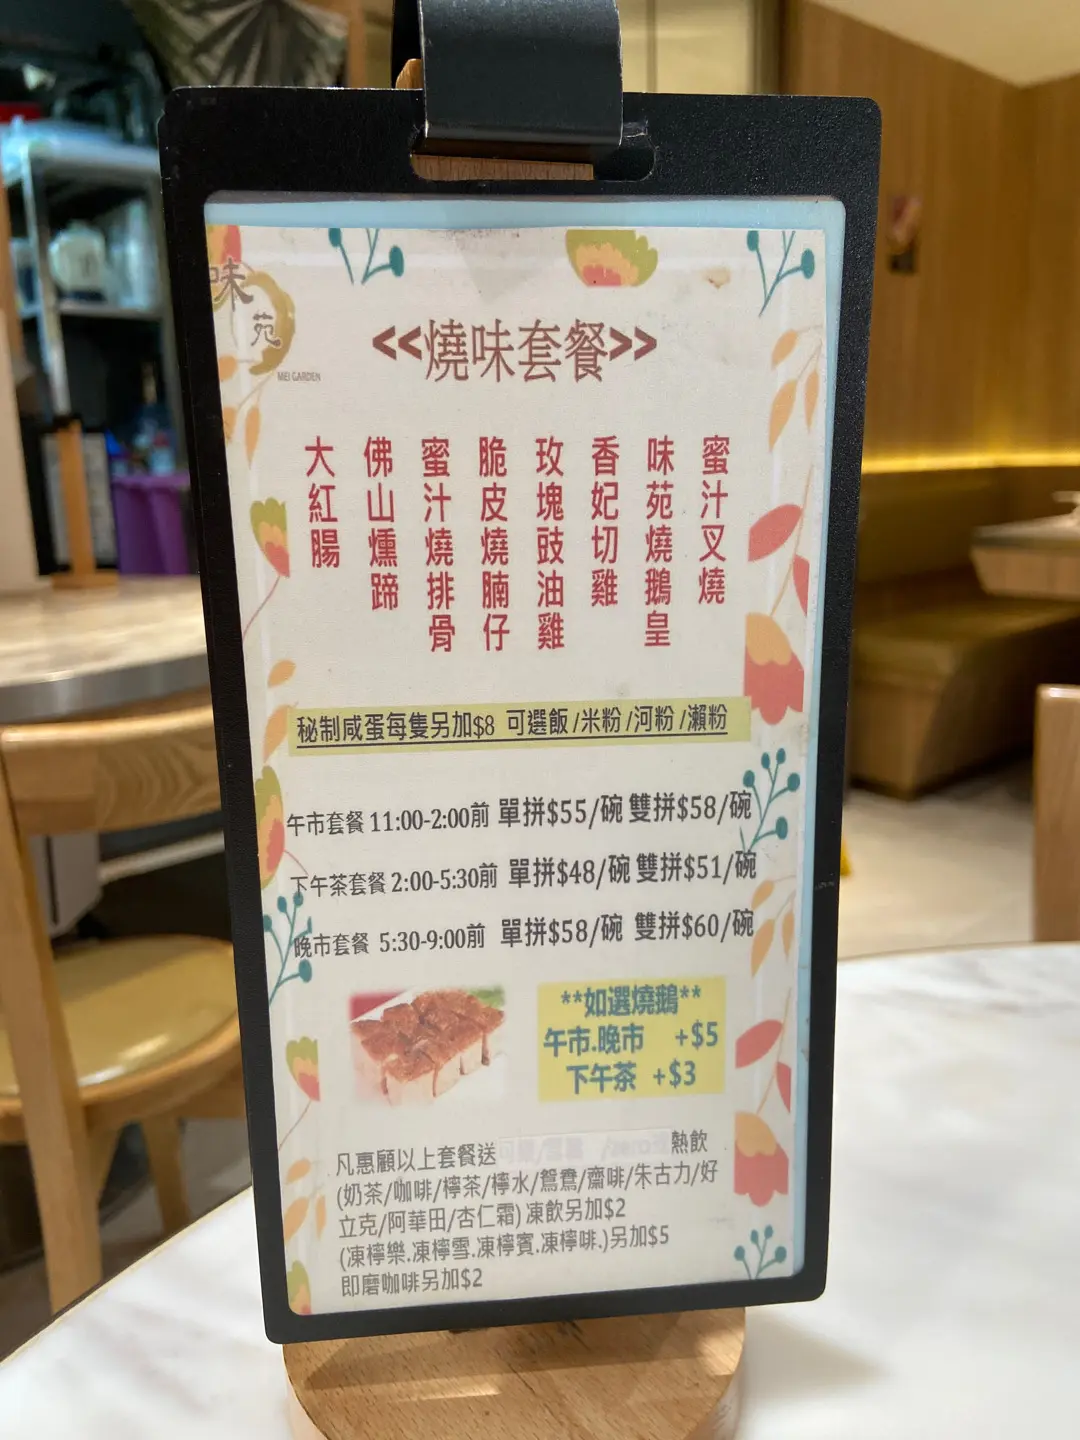 味苑
MEI GARDEN
<<燒味套餐>>
蜜汁叉燒
味苑燒鵝皇
香妃切雞
玫瑰豉油雞
脆皮燒腩仔
蜜汁燒排骨
佛山燻蹄
大紅腸
秘制咸蛋每隻另加$8 可選飯/米粉/河粉/瀨粉
午市套餐 11:00-2:00前 單拼$55/碗 雙拼$58/碗
下午茶套餐 2:00-5:30前 單拼$48/碗 雙拼$51/碗
晚市套餐 5:30-9:00前 單拼$58/碗 雙拼$60/碗
**如選燒鵝**
午市.晚市 +$5
下午茶 +$3
凡惠顧以上套餐送 熱飲
(奶茶/咖啡/檸茶/檸水/鴛鴦/齋啡/朱古力/好
立克/阿華田/杏仁霜) 凍飲另加$2
(凍檸樂.凍檸雪.凍檸賓.凍檸啡.)另加$5
即磨咖啡另加$2